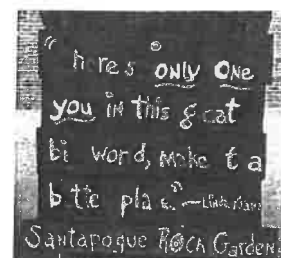 "here's only one
you in this great
bi word, make t a
bttle pla e."
Santapogue Rock Garden